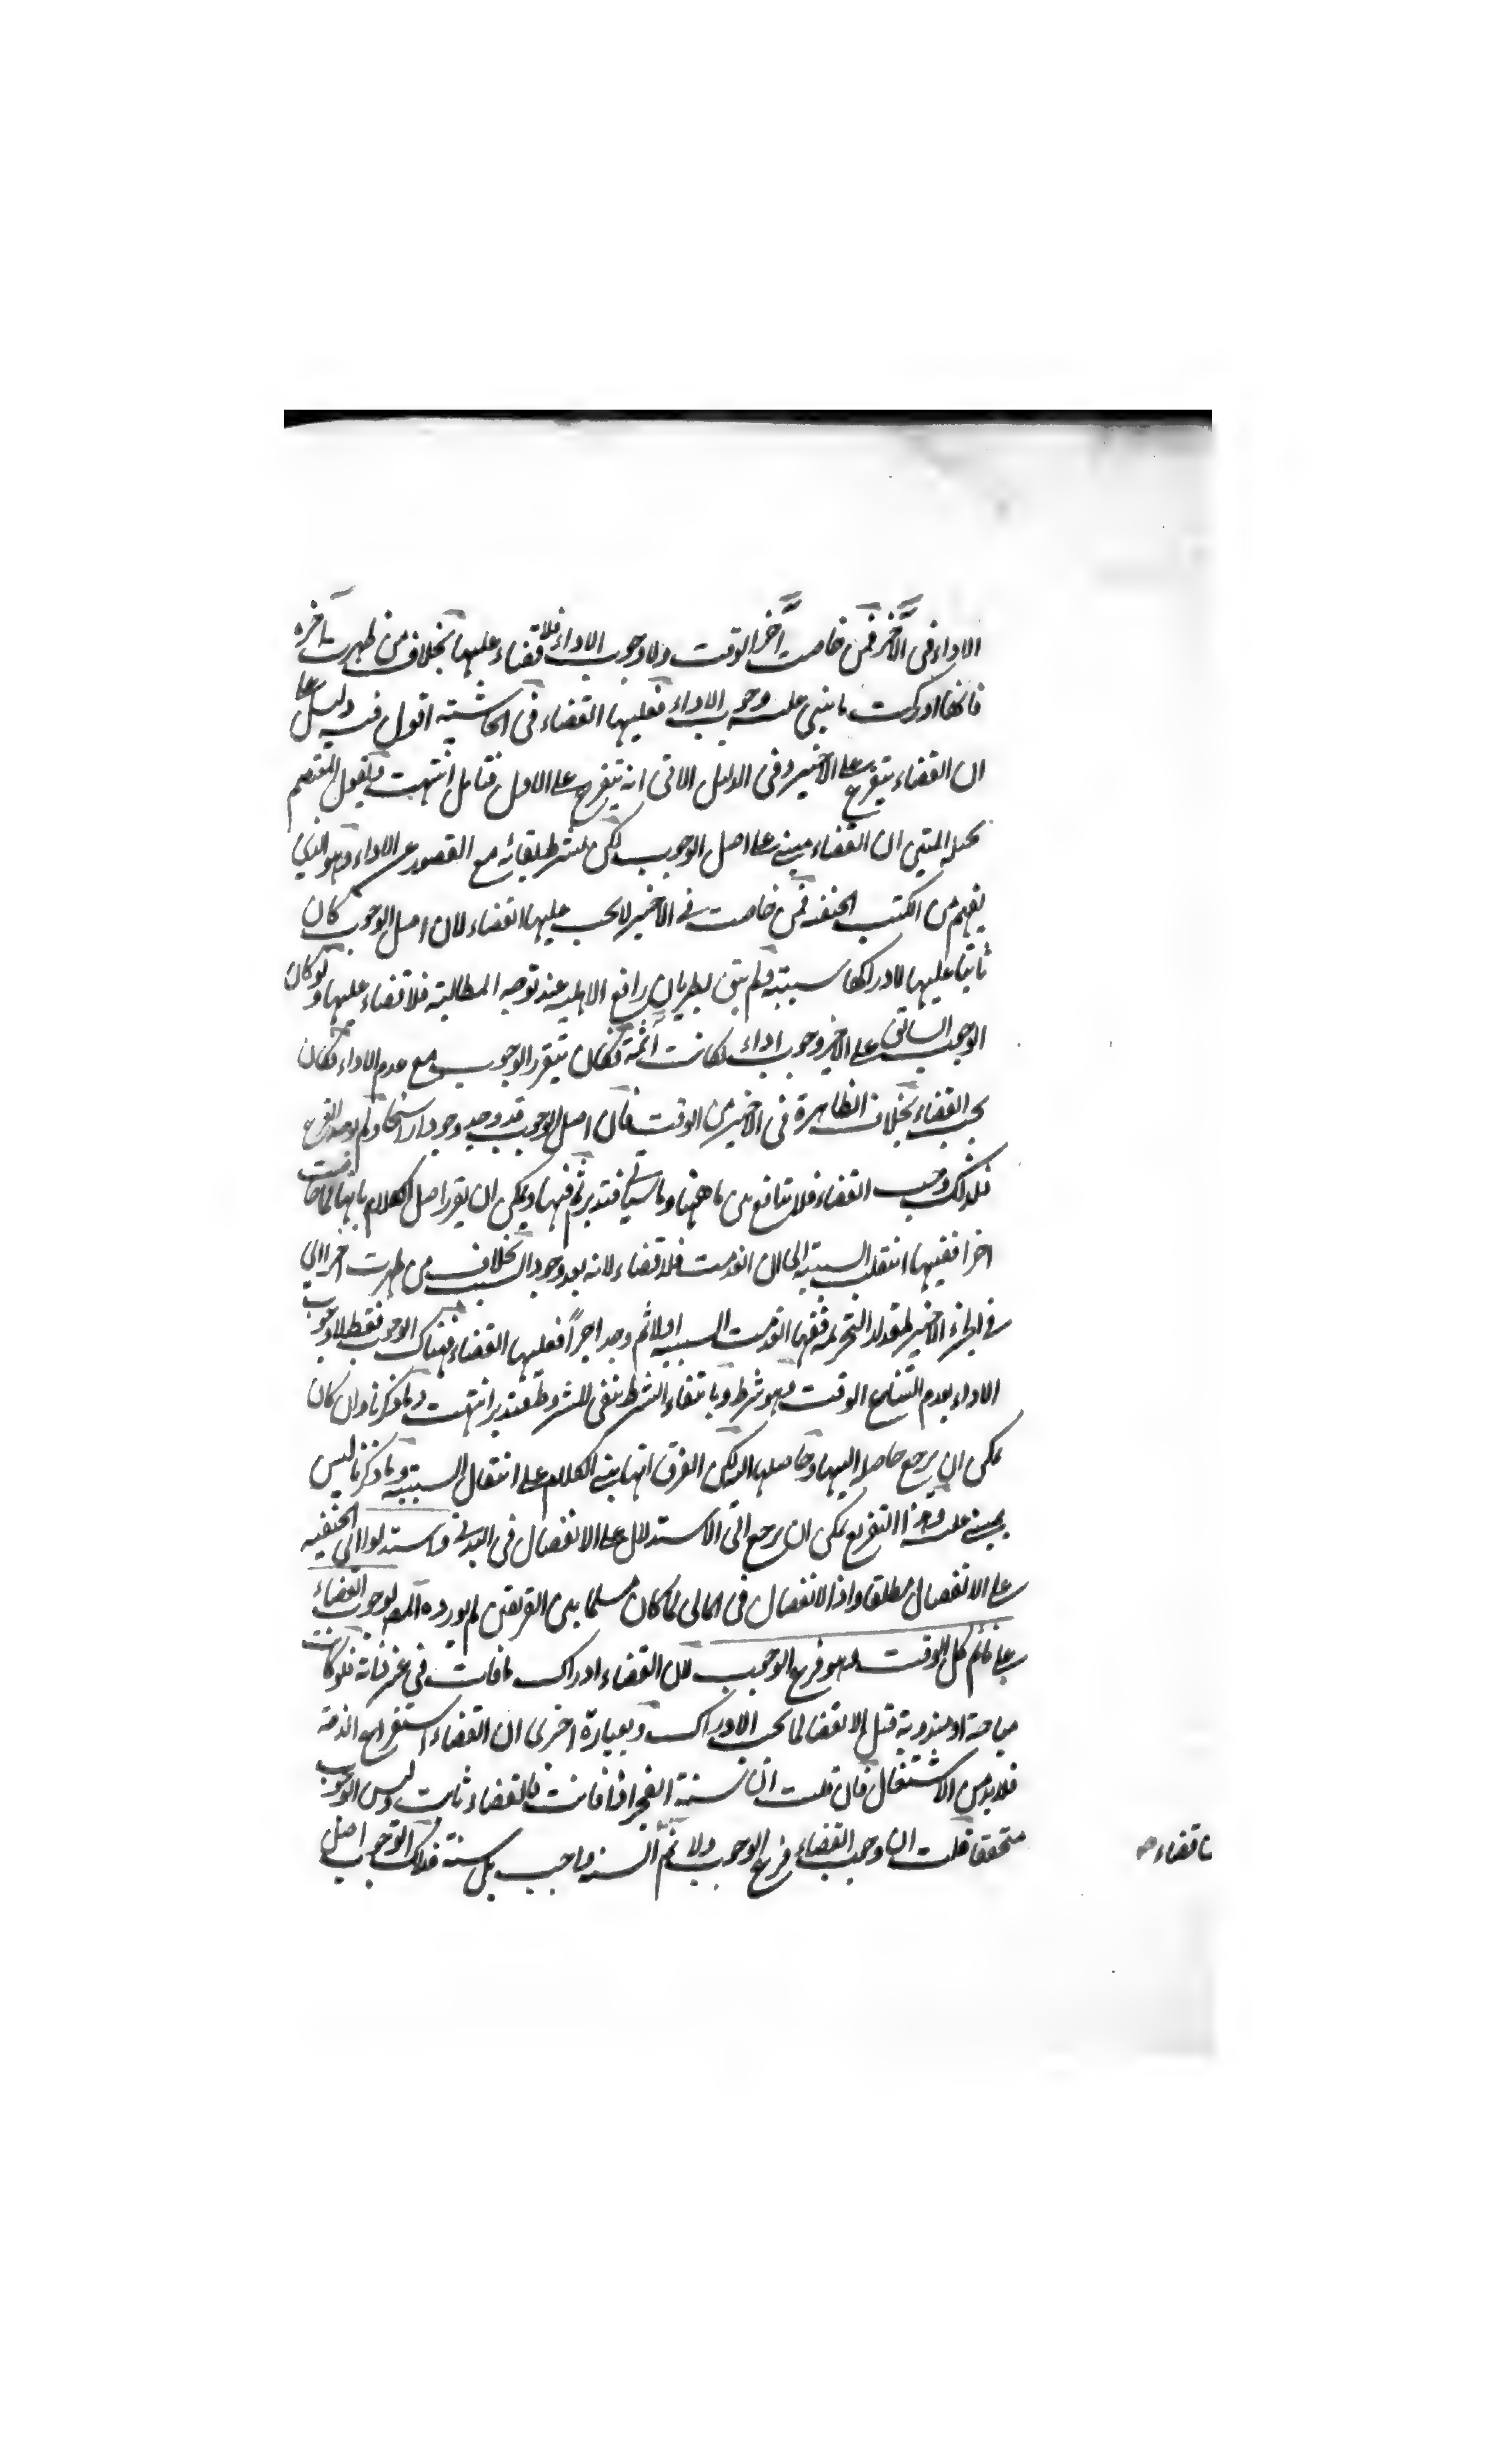 الاداء فى الآخر فمن حاضت آخر الوقت ولا وجوب الاداء فلا قضاء عليها بخلاف من طهرت آخره
فانها ادركت ما ينبى عليه وجوب الاداء فعليها القضاء فى الحاشية اقول فيه دليل على
ان القضاء يتفرع على الاخير وفى الدليل الاتى انه يتفرع على الاول فتامل انتهت ويقول المعتصم
بحبله المتين ان القضاء مبنى على اصل الوجوب لكن بشرط بقائه مع القصور عن الاداء وهو الذي
يفهم من الكتب الحنفية فمن حاضت في الاخير لا يجب عليها القضاء لان اصل الوجوب كان
ثابتا عليها لادراكها سببية ولم يبق لطريان رافع الاهلية عند توجه المطالبة فلا قضاء عليها ولو كان
الوجوب السابق على الاخير وجوب اداء لكانت آثمة فكان يتقرر الوجوب مع عدم الاداء فكان
يجب القضاء بخلاف الطاهرة فى الاخير من الوقت فان اصل الوجوب قد وجد وجودا راسخا ولم يوجد
فلذلك وجب القضاء فلا تدافع بين ما ههنا وما سيأتي فتدبر ثم فيها ويمكن ان يقرر اصل الكلام بانها لما حاضت
اخرا ففيها انتقلت السببية الى الان انعدمت فلا قضاء لانه بعد وجود السبب بخلاف من طهرت اخرا اي
في الجزء الاخير بمقدار التحريمة ففيها انعدمت السببية اولا ثم وجد اجراً فعليها القضاء فهناك الوجوب فقط بلا وجوب
الاداء لعدم اتساع الوقت وهو شرط وبانتفاء الشرط ينتفى المشروط فتدبر انتهت وما ذكرنا وان كان
يمكن ان يرجع حاصله اليها وحاصلها اليه لكن الفرق انها يبتنى الكلام على انتقال السببية وما ذكرنا ليس
بمبنى عليه وهذا التفريع يمكن ان يرجع الى الاستدلال على الانفصال فى البدني واستدلوا اي الحنفيه
على الانفصال مطلقا واذ الانفصال فى المالى لما كان مسلما بين الفريقين لم يورده المص بوجوب القضاء
على نائم كل الوقت وهو فرع الوجوب لان القضاء ادراك ما فات في غير فلو كانت
مباحة او مندوبة قبل الانقضا لما يجب الادراك وبعبارة اخرى ان القضاء استفراغ الذمة
فلابد من الاشتغال فان قلت ان سنة الفجر اذا فاتت فالقضاء ثابت وليس الوجوب
متحققا قلت ان وجوب القضاء فرع الوجوب ولا ثم السنة واجب بل سنة فذلك الوجوب اصل
نا قضاء صه